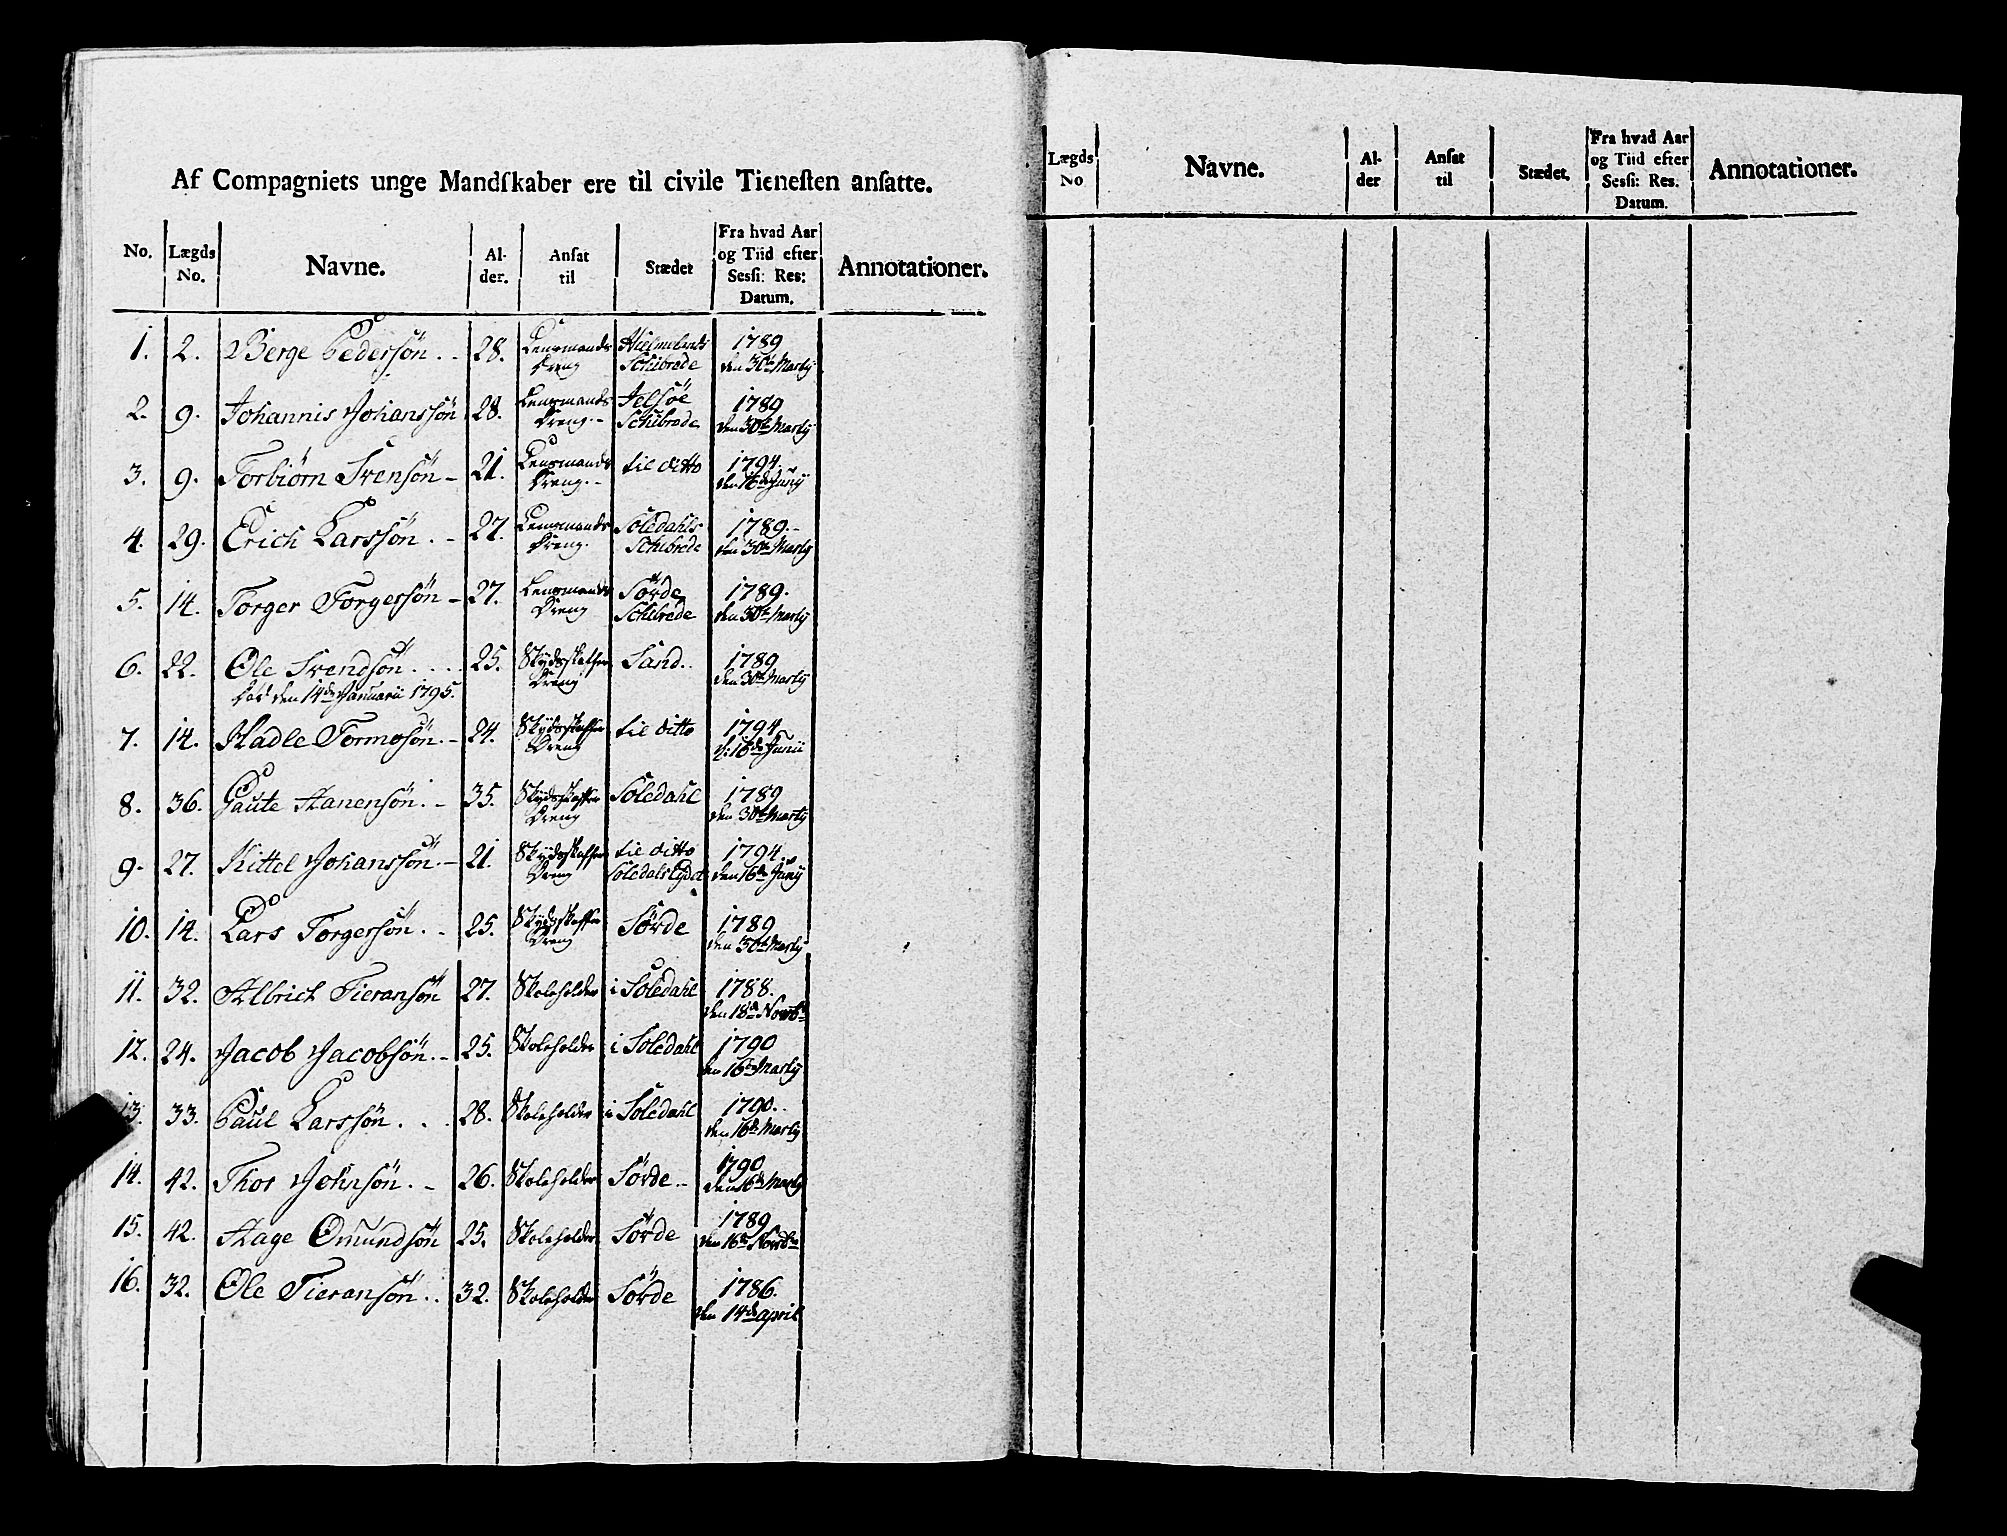 Af Compagniets unge Mandſkaber ere til civile Tieneſten anſatte.
No. Lægds No. Navne. Al-der. Anſat til Stædet Fra hvad Aar og Tiid efter Sesſi: Res: Datum. Annotationer.
1. 2. Berge Pedersön. 28. Lensmands Dreng Hielmelands Schibrede 1789 den 30te Martÿ
2. 9. Johannis Johanssön 28. Lensmands Dreng. Jelsöe Schibrede 1789 den 30te Martÿ
3. 9. Torbiörn Svensön 21. Lensmands Dreng. til ditto 1794. den 16de Junÿ
4. 29. Erich Larssön. 27. Lensmands Dreng. Soledahls Schibrede 1789. den 30te Martÿ
5. 14. Torger Torgersön 27. Lensmands Dreng Sörde Schibrede 1789. den 30te Martÿ
6. 22. Ole Svendsön. 25. Skydsskaffer Dreng Sand. 1789 den 30te Martÿ
Död den 14de Januarii 1795.
7. 14. Hadle Tormosön. 24. Skydsskaffer Dreng til ditto 1794 d: 16de Junii
8. 36. Gaute Hanensön. 35. Skydsskaffer Dreng Soledahl 1789 den 30te Martÿ
9. 27. Kittel Johanssön. 21. Skydsskaffer Dreng til ditto Soledals Eydet 1794. den 16de Junÿ
10. 14. Lars Torgersön. 25. Skydsskaffer Dreng Sörde 1789 den 30te Martÿ
11. 32. Albrich Tieransön 27. Skoleholder i Soledahl 1788. den 18de Novbr
12. 24. Jacob Jacobsön. 25. Skoleholder i Soledahl 1790 den 16de Martÿ
13. 33. Paul Larssön. 28. Skoleholder i Soledahl 1790. den 16de Martÿ
14. 42. Thor Johnsön. 26. Skoleholder Sörde 1790 den 16de Martÿ
15. 42. Aage Omundsön 25. Skoleholder Sörde 1789 den 16de Novbr
16. 32. Ole Tieransön. 32. Skoleholder Sörde 1786. den 14de april
Lægds No Navne. Al-der Anſat til Stædet. Fra hvad Aar og Tiid efter Sesſi: Res. Datum. Annotationer.